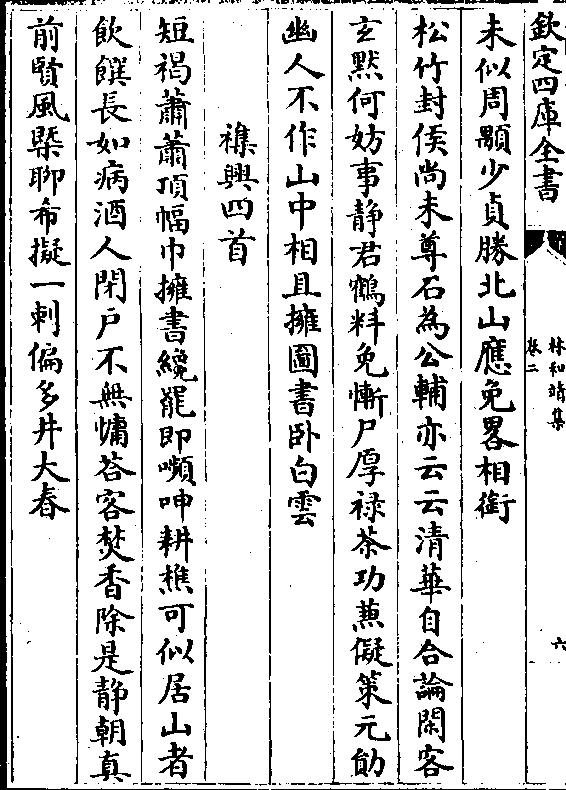 欽定四庫全書
林和靖集
卷二
六
未似周顒少貞勝北山應免畧相銜
松竹封侯尚未尊石為公輔亦云云清華自合論閑客
玄黙何妨事静君鶴料免慚尸厚禄茶功蕪儗策元勛
幽人不作山中相且擁圖書卧白雲
襍興四首
短褐蕭蕭頂幅巾擁書纔罷即嚬呻耕樵可似居山者
飲饌長如病酒人閉户不無慵荅客焚香除是静朝真
前賢風槩聊希擬一刺偏多井大春